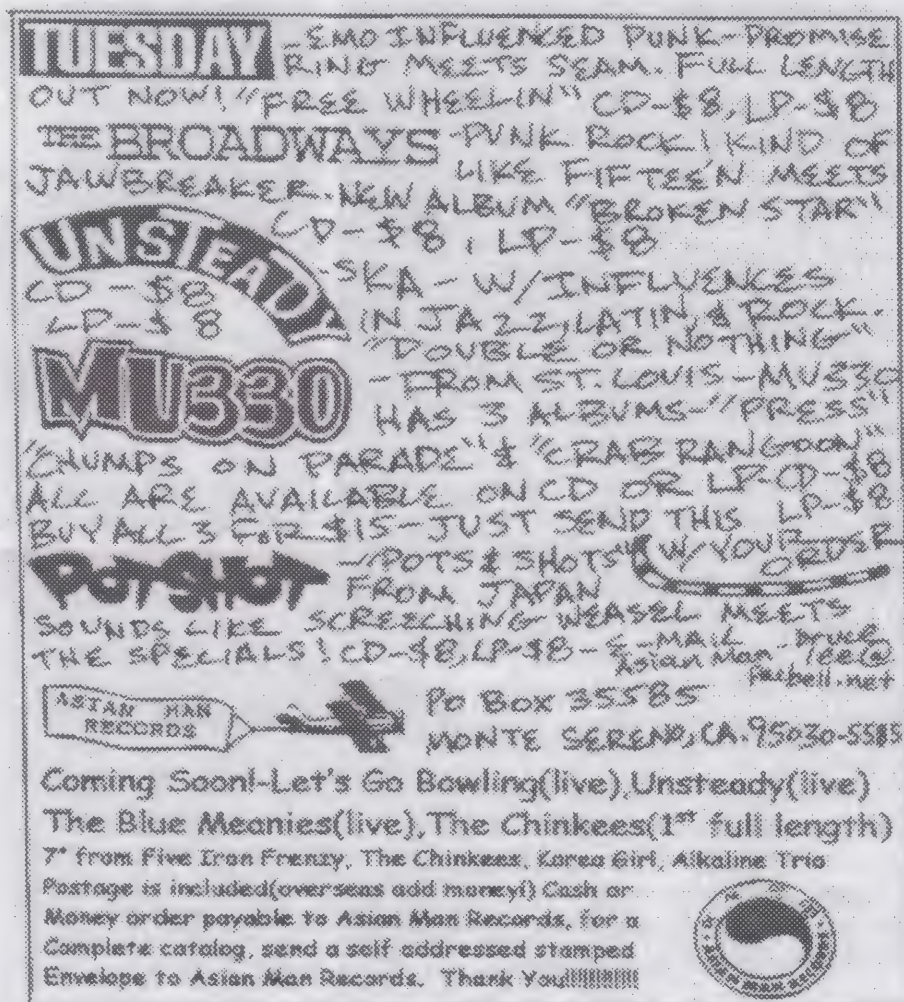 TUESDAY - EMO INFLUENCED PUNK - PROMISE
RING MEETS SEAM. FULL LENGTH
OUT NOW! "FREE WHEELIN" CD-$8, LP-$8
THE BROADWAYS - PUNK ROCK! KIND OF
LIKE FIFTEEN MEETS
JAWBREAKER. NEW ALBUM "BROKEN STAR"!
CD-$8, LP-$8
UNSTEADY - SKA - W/INFLUENCES
CD-$8
IN JAZZ, LATIN, & ROCK.
LP-$8
"DOUBLE OR NOTHING"
MU330 - FROM ST. LOUIS - MU330
HAS 3 ALBUMS - "PRESS"
"CHUMPS ON PARADE" & "CRAB RANGOON"
ALL ARE AVAILABLE ON CD OR LP-CD-$8
LP-$8
BUY ALL 3 FOR $15 - JUST SEND THIS
W/YOUR ORDER
POTSHOT - "POTS & SHOTS"
FROM JAPAN
SOUNDS LIKE SCREECHING WEASEL MEETS
THE SPECIALS! CD-$8, LP-$8 - E-MAIL
Asian Man
ASIAN MAN RECORDS
PO BOX 35585
MONTE SERENO, CA. 95030-5585
Coming Soon!-Let's Go Bowling(live),Unsteady(live)
The Blue Meanies(live),The Chinkees(1st full length)
7" from Five Iron Frenzy, The Chinkees, Korea Girl, Alkaline Trio
Postage is included(overseas add money!) Cash or
Money order payable to Asian Man Records, for a
Complete catalog, send a self addressed stamped
Envelope to Asian Man Records. Thank You!!!!!!!!!